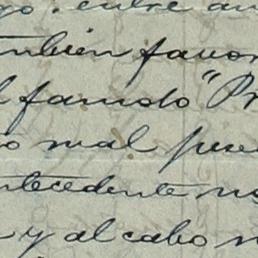 go, entre an
tambien favor
l famoso "Pr
o mal pero
ntecedente no
y al cabo n